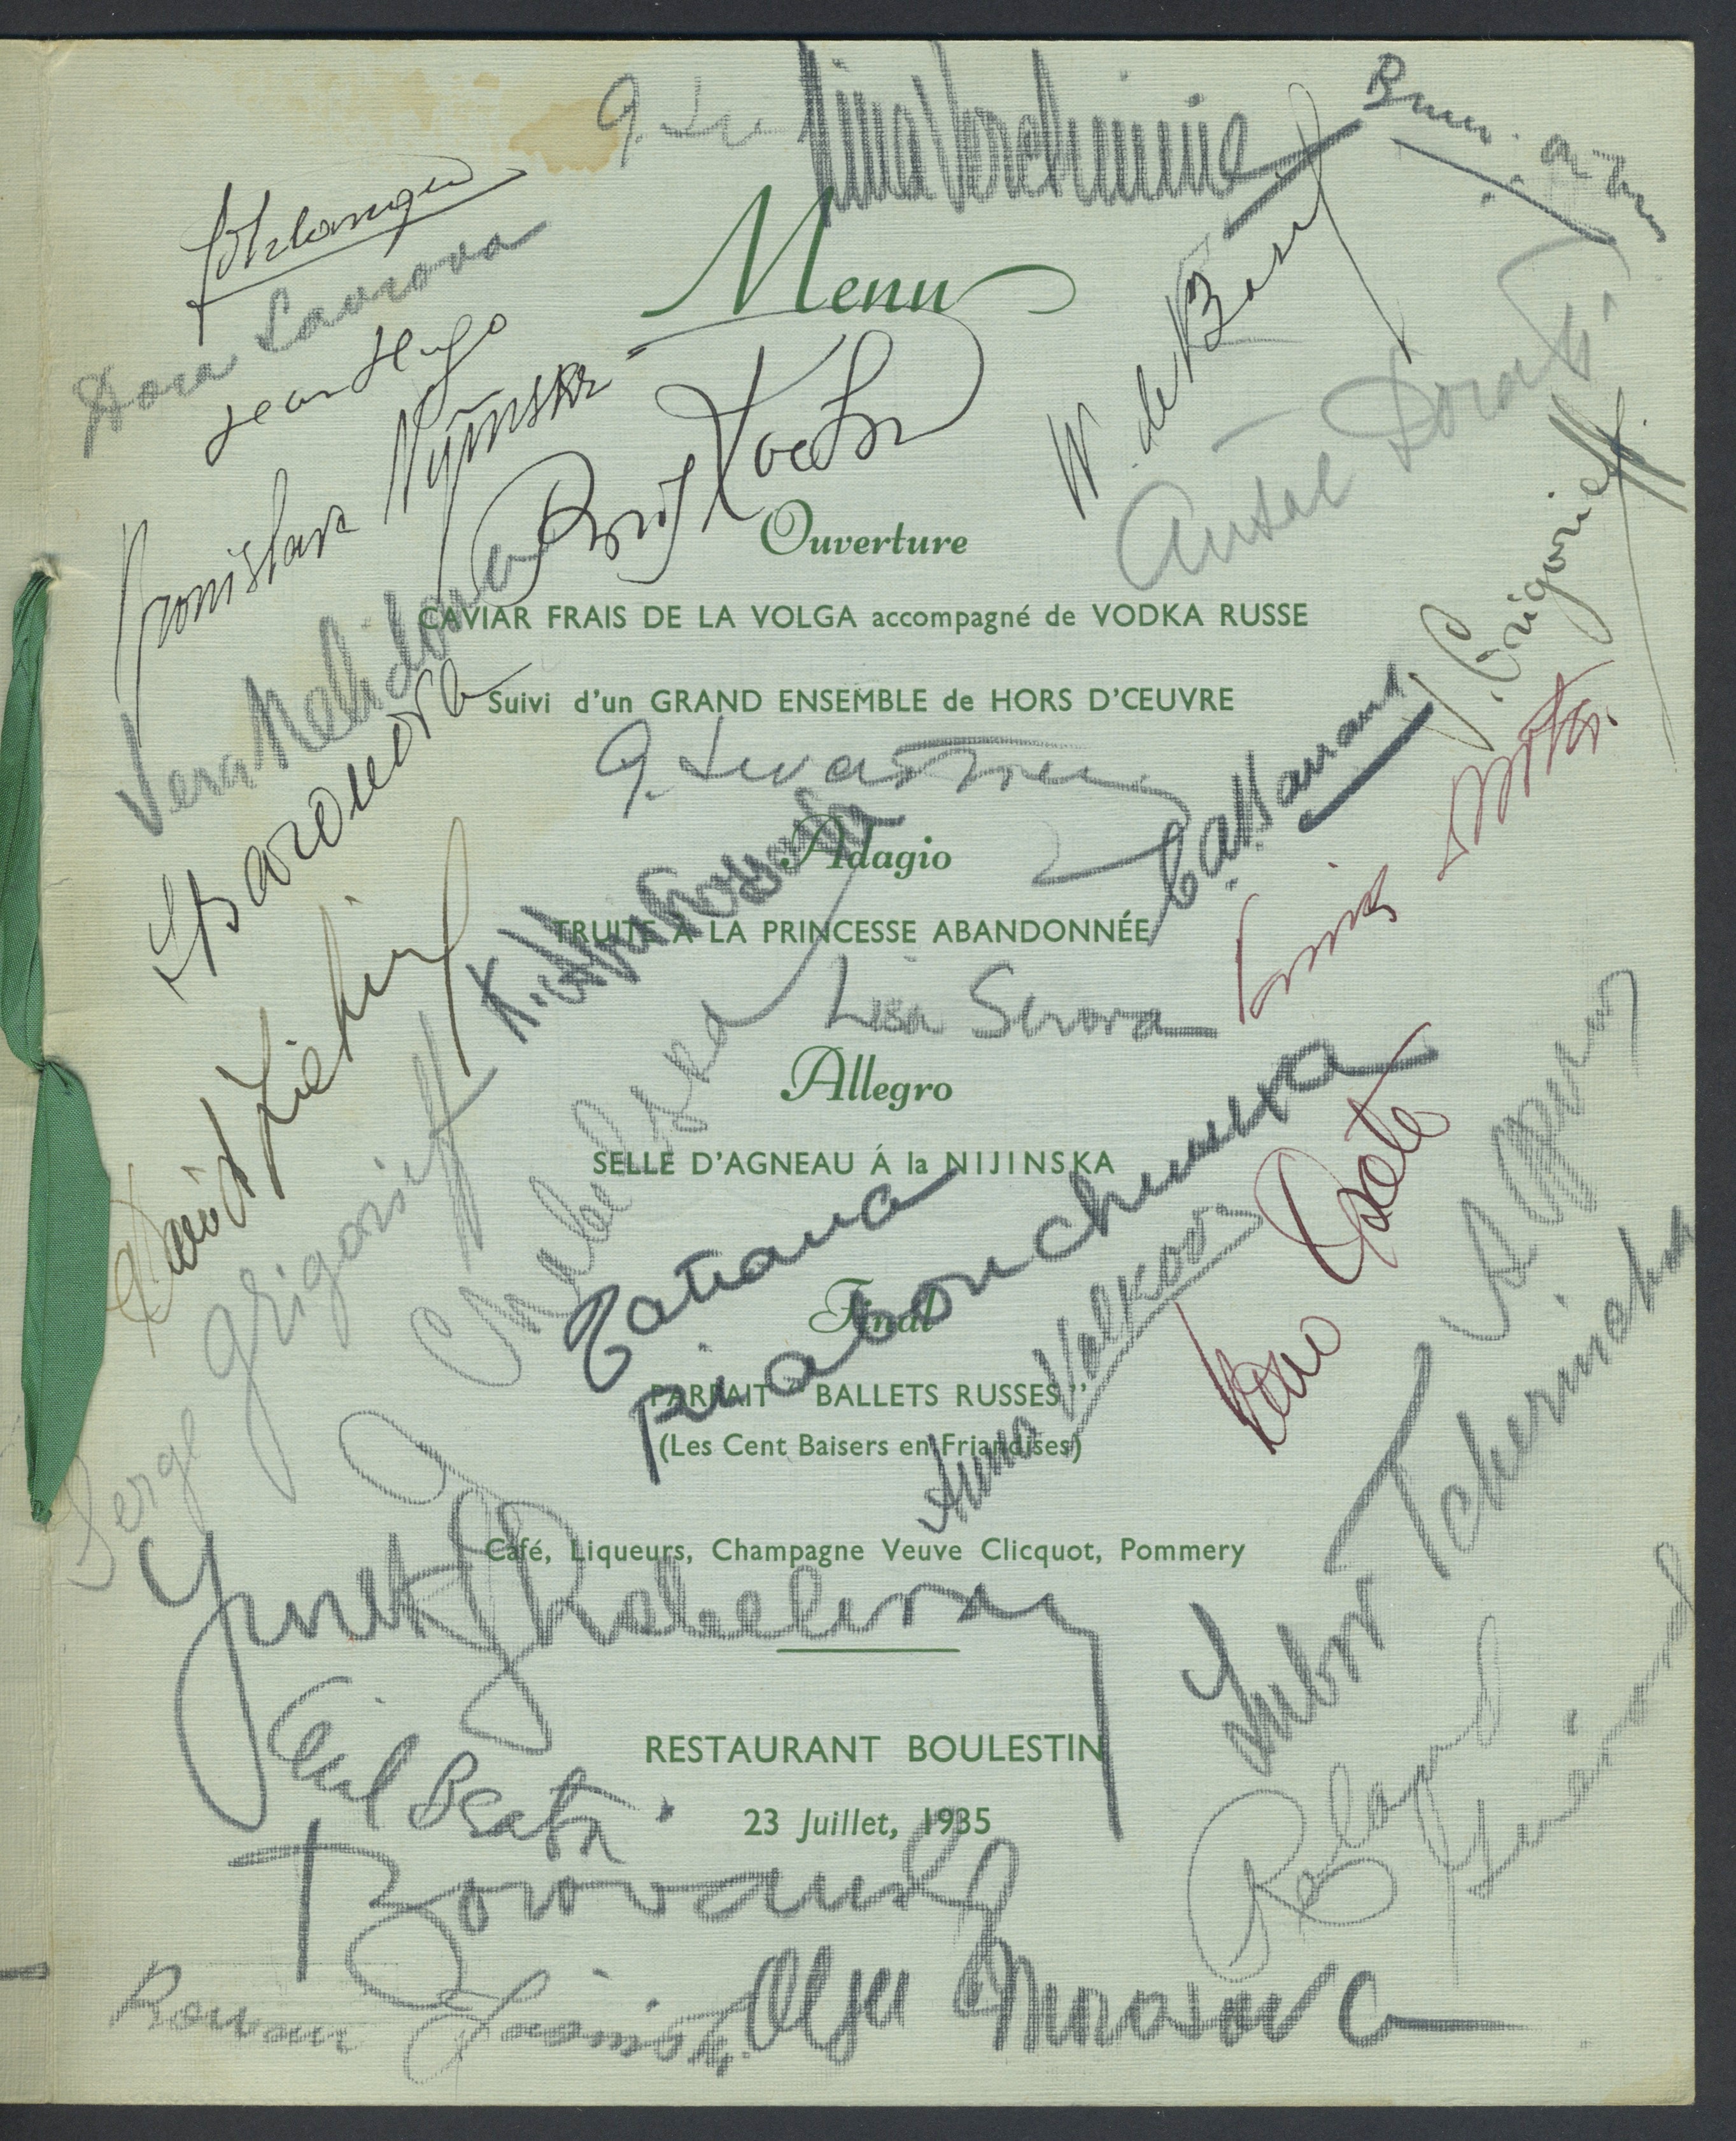 Nina Verchinina
Menu
W. de Basil
Jean Hugo
Antal Dorati
Boris Kochno
Ouverture
CAVIAR FRAIS DE LA VOLGA accompagné de VODKA RUSSE
S. Grigorieff.
Vera Nelidova
Suivi d'un GRAND ENSEMBLE de HORS D'ŒUVRE
Cassandre
Adagio
TRUITE A LA PRINCESSE ABANDONNÉE
Lisa Serova
David Lichine
Allegro
SELLE D'AGNEAU Á la NIJINSKA
Serge Grigorieff
Tatiana Riabouchinska
Final
Anna Volkova
PARFAIT " BALLETS RUSSES "
(Les Cent Baisers en Friandises)
Café, Liqueurs, Champagne Veuve Clicquot, Pommery
Lubov Tchernicheva
Yurek Shabelevsky
RESTAURANT BOULESTIN
Cecil Beaton
23 Juillet, 1935
Roland Guérard
Borovansky
Roman Jasinski
Olga Morosova